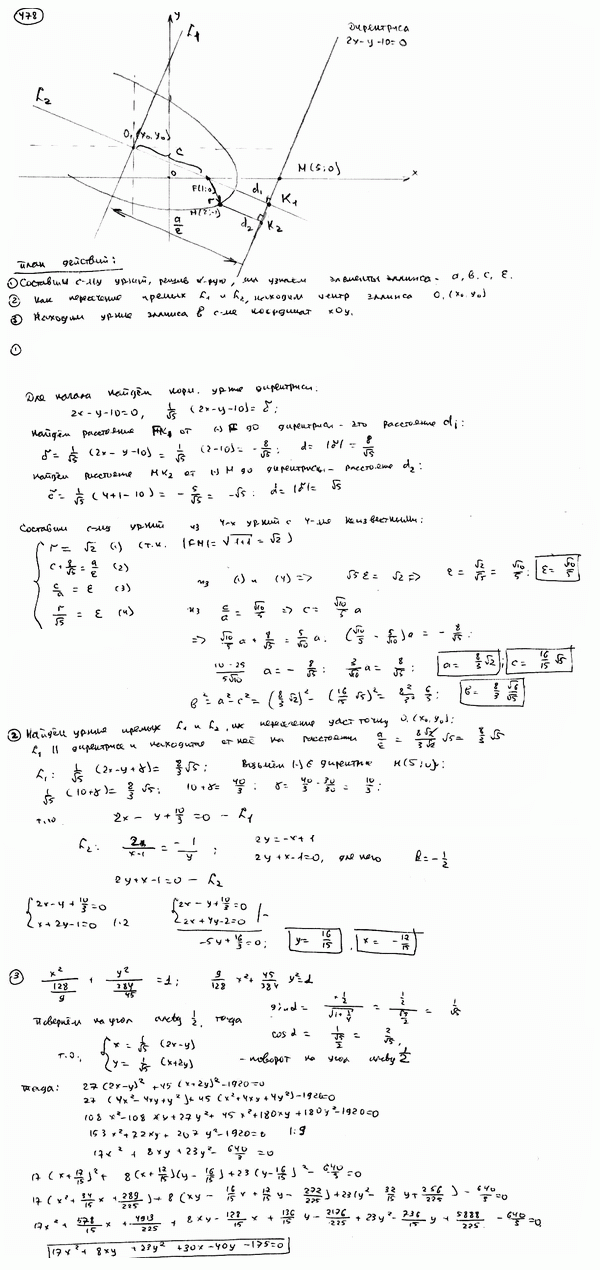 478
y
L₁
Директриса
2x-y-10=0
L₂
O₁ (x₀, y₀)
c
0
F(1;0)
M(5;0)
x
r
M(2;-1)
d₁
K₁
d₂
K₂
a/ε
План действий:
① Составим с-му ур-ний, решив к-рую, мы узнаем элементы эллипса - a, b, c, ε.
② Как пересечение прямых L₁ и L₂, находим центр эллипса O₁(x₀, y₀)
③ Находим ур-ние эллипса в с-ме координат xOy.
①
Для начала найдём норм. ур-ние директрисы.
2x-y-10=0, 1/√5 (2x-y-10)= δ;
Найдём расстояние FK₁ от (·) F до директрисы - это расстояние d₁:
δ = 1/√5 (2x-y-10) = 1/√5 (2-10) = -8/√5; d=|δ|= 8/√5
Найдём расстояние MK₂ от (·) M до директрисы - расстояние d₂:
δ = 1/√5 (4+1-10) = -5/√5 = -√5; d=|δ|= √5
Составим с-му ур-ний из 4-х ур-ний с 4-мя неизвестными:
r = √2 (1) (т.к. |FM|= √1+1 = √2)
c + 8/√5 = a/ε (2)
c/a = ε (3)
r/√5 = ε (4)
из (1) и (4) => √5 ε = √2 => ε = √2/√5 = √10/5; ε = √10/5
из c/a = √10/5 => c = √10/5 a
=> √10/5 a + 8/√5 = 5/√10 a. (√10/5 - 5/√10)a = -8/√5;
10-25/5√10 a = -8/√5; 3/√10 a = 8/√5; a = 8/3 √2; c = 16/15 √5
b² = a²-c² = (8/3 √2)² - (16/15 √5)² = 8²/3² 6/5; b = 8/3 √6/√5
② Найдём ур-ние прямых L₁ и L₂, их пересечение даст точку O₁(x₀, y₀):
L₁ || директрисе и находится от неё на расстоянии a/ε = 8√2/3√2 √5 = 8/3 √5
L₁: 1/√5 (2x-y+γ) = 8/3 √5; Возьмём (·) ∈ директрисе M(5;0):
1/√5 (10+γ) = 8/3 √5; 10+γ = 40/3; γ = 40/3 - 30/30 = 10/3;
т.о. 2x - y + 10/3 = 0 - L₁
L₂: 2x/x-1 = -1/y; 2y=-x+1
2y+x-1=0, для него k=-1/2
2y+x-1=0 - L₂
2x-y+10/3=0
x+2y-1=0 |·2
2x-y+10/3=0
2x+4y-2=0 |-
-5y+16/3=0; y= 16/15, x= -17/15
③ x²/(128/9) + y²/(384/45) = 1; 9/128 x² + 45/384 y² = 1
Повернём на угол arctg 1/2, тогда
sin α = 1/2/√1+1/4 = 1/2/√5/2 = 1/√5
cos α = 1/√5/2 = 2/√5,
т.о. x = 1/√5 (2x-y)
y = 1/√5 (x+2y) - поворот на угол arctg 1/2
Тогда: 27 (2x-y)² + 45 (x+2y)² - 1920=0
27 (4x²-4xy+y²) + 45 (x²+4xy+4y²) - 1920=0
108 x² - 108 xy + 27y² + 45 x² + 180xy + 180y² - 1920=0
153x² + 72xy + 207 y² - 1920=0 |:9
17x² + 8xy + 23y² - 640/3 = 0
17 (x+17/15)² + 8(x+17/15)(y-16/15) + 23(y-16/15)² - 640/3 = 0
17 (x²+34/15 x+289/225) + 8 (xy-16/15 x+17/15 y-272/225) + 23(y²-32/15 y+256/225) - 640/3=0
17x² + 578/15 x + 4913/225 + 8xy - 128/15 x + 136/15 y - 2176/225 + 23y² - 736/15 y + 5888/225 - 640/3 = 0
17x² + 8xy + 23y² + 30x - 40y - 175=0